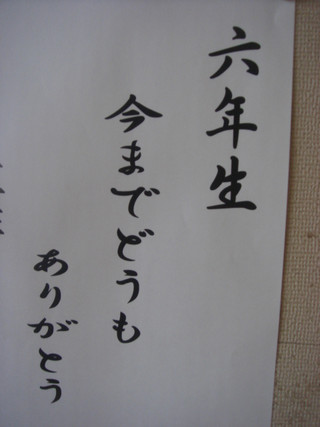 六年生
今までどうも
ありがとう